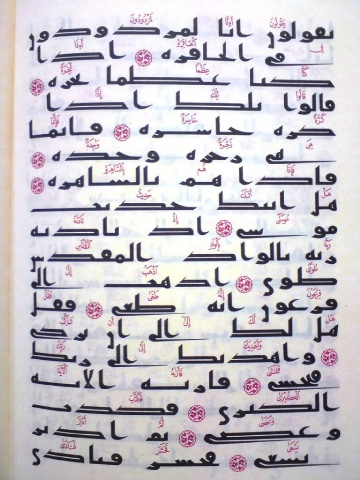 يقولون انا لمردودون
في الحافره ۝ اذا
كنا عظما نخره ۝
قالوا تلك اذا
كره خاسره ۝ فانما
هي زجره وحده ۝
فاذا هم بالساهره ۝
هل اتيك حديث
موسى ۝ اذ ناديه
ربه بالواد المقدس
طوى ۝ اذهب الى
فرعون انه طغى ۝ فقل
هل لك الى ان تزكى
۝ واهديك الى ربك
فتخشى ۝ فاريه الايه
الكبرى ۝ فكذب
وعصى ۝ ثم ادبر
يسعى ۝ فحشر فنادى